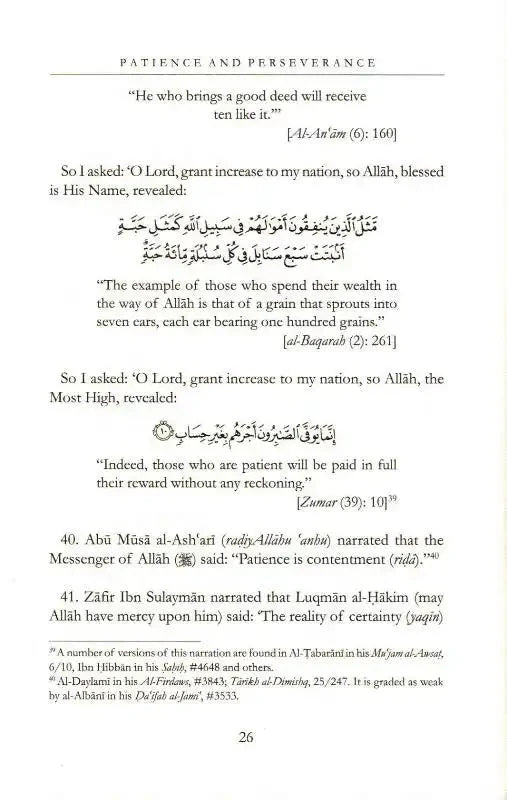 PATIENCE AND PERSEVERANCE
“He who brings a good deed will receive
ten like it.’”
[Al-An‘ām (6): 160]
So I asked: ‘O Lord, grant increase to my nation, so Allāh, blessed
is His Name, revealed:
مَّثَلُ ٱلَّذِينَ يُنفِقُونَ أَمْوَٰلَهُمْ فِى سَبِيلِ ٱللَّهِ كَمَثَلِ حَبَّةٍ
أَنۢبَتَتْ سَبْعَ سَنَابِلَ فِى كُلِّ سُنۢبُلَةٍ مِّا۟ئَةُ حَبَّةٍ ۗ
“The example of those who spend their wealth in
the way of Allāh is that of a grain that sprouts into
seven ears, each ear bearing one hundred grains.”
[al-Baqarah (2): 261]
So I asked: ‘O Lord, grant increase to my nation, so Allāh, the
Most High, revealed:
إِنَّمَا يُوَفَّى ٱلصَّـٰبِرُونَ أَجْرَهُم بِغَيْرِ حِسَابٍ ١٠
“Indeed, those who are patient will be paid in full
their reward without any reckoning.”
[Zumar (39): 10]39
40. Abū Mūsā al-Ash‘arī (raḍiyAllāhu ‘anhu) narrated that the
Messenger of Allāh (ﷺ) said: “Patience is contentment (riḍā).”40
41. Zāfir Ibn Sulaymān narrated that Luqmān al-Ḥākim (may
Allāh have mercy upon him) said: ‘The reality of certainty (yaqīn)
39 A number of versions of this narration are found in Al-Ṭabarānī in his Mu‘jam al-Awsaṭ,
6/10, Ibn Ḥibbān in his Ṣaḥīḥ, #4648 and others.
40 Al-Daylamī in his Al-Firdaws, #3843; Tārīkh al-Dimishq, 25/247. It is graded as weak
by al-Albānī in his Ḍa‘īfah al-Jami‘, #3533.
26